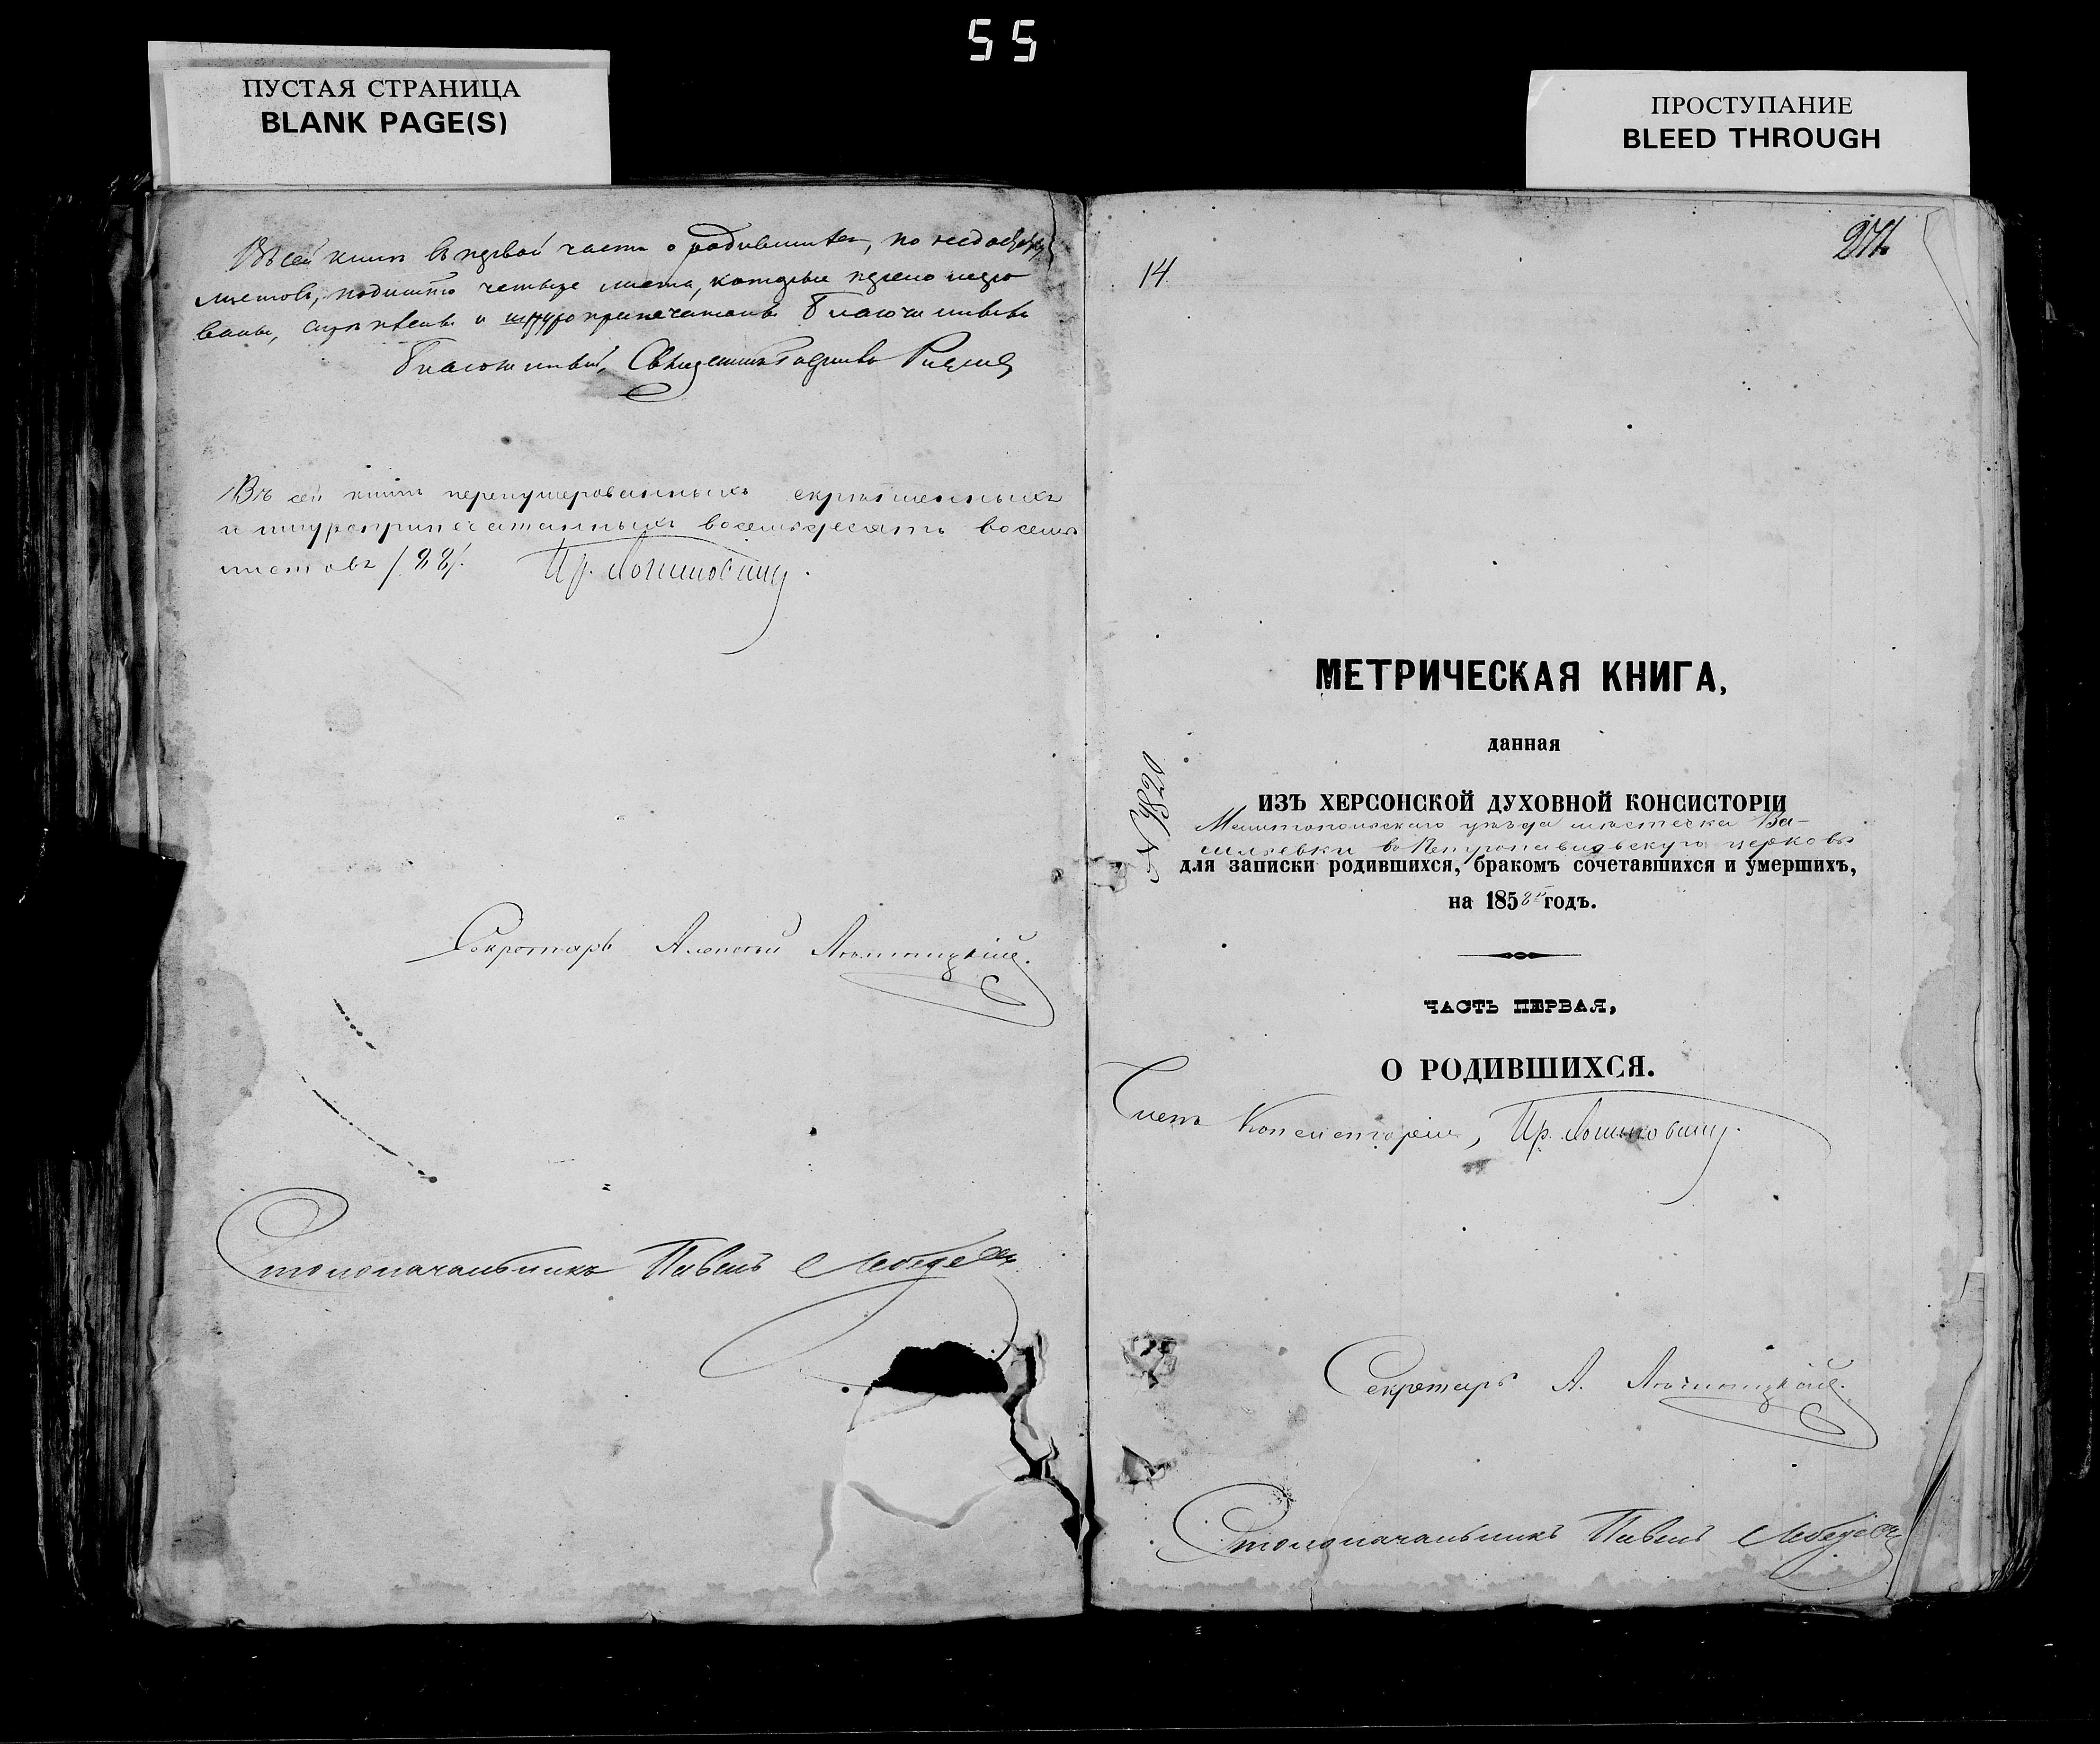 55
ПУСТАЯ СТРАНИЦА
BLANK PAGE(S)
ПРОСТУПАНИЕ
BLEED THROUGH
Въ сей книгѣ въ первой части о родившихся, по недостатку
листовъ, подшито четыре листа, которые прономеро
ваны, скрѣплены и шнуроприпечатаны Благочиннымъ
Благочинный, Священникъ
Въ сей книгѣ перенумерованныхъ скрѣпленныхъ
и шнуроприпечатанныхъ восемьдесятъ восемь
листовъ /88/.
Секретарь Алексѣй
Столоначальникъ Павелъ Лебедевъ
14
274
МЕТРИЧЕСКАЯ КНИГА,
данная
ИЗЪ ХЕРСОНСКОЙ ДУХОВНОЙ КОНСИСТОРІИ
Мелитопольскаго уѣзда мѣстечка Ва-
сильевки въ Петропавловскую церковь
для записки родившихся, бракомъ сочетавшихся и умершихъ,
на 1858й годъ.
№ 1820
ЧАСТЬ ПЕРВАЯ,
О РОДИВШИХСЯ.
Членъ Консисторіи,
Секретарь А.
Столоначальникъ Павелъ Лебедевъ